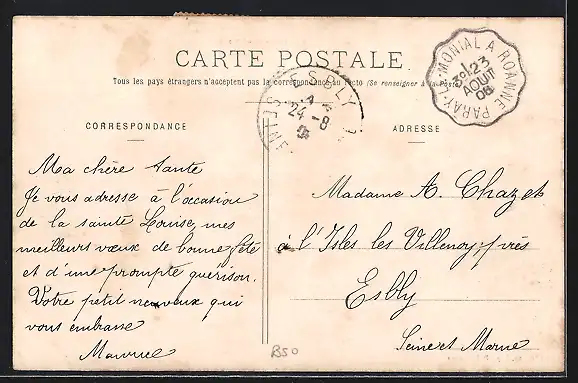 CARTE POSTALE
Tous les pays étrangers n'acceptent pas la correspondance au recto (Se renseigner à la Poste)
CORRESPONDANCE
ADRESSE
PARAY-L-MONIAL A ROANNE
3° 23
AOUT
06
ESBLY
24 - 8
SEINE
Ma chère tante
Je vous adresse à l'occasion
de la sainte Louise, mes
meilleurs vœux de bonne fête
et d'une prompte guérison.
Votre petit neuveux qui
vous embrasse
Maurice
Madame A. Chazet
à l'Isles les Villenoy, près
Esbly
Seine et Marne
B50